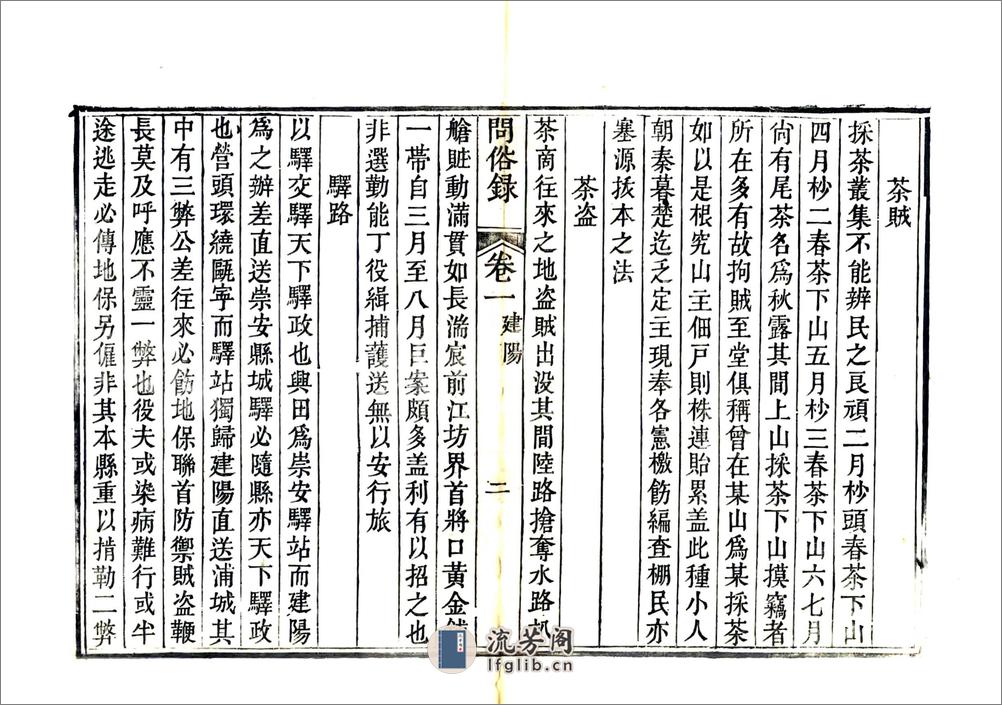 茶賊
採茶叢集不能辨民之良頑二月杪頭春茶下山
四月杪二春茶下山五月杪三春茶下山六七月
尙有尾茶名爲秋露其間上山採茶下山摸竊者
所在多有故拘賊至堂俱稱曾在某山爲某採茶
如以是根究山主佃戸則株連貽累盖此種小人
朝秦暮楚迄乏定主現奉各憲檄飭編查棚民亦
塞源拔本之法
茶盗
茶商往來之地盗賊出没其間陸路搶奪水路扒
艙賍動滿貫如長湍宸前江坊界首將口黄金
一帶自三月至八月巨案頗多盖利有以招之也
非選勤能丁役緝捕護送無以安行旅
驛路
以驛交驛天下驛政也興田爲崇安驛站而建陽
爲之辦差直送崇安縣城驛必隨縣亦天下驛政
也營頭環繞甌寧而驛站獨歸建陽直送浦城其
中有三弊公差往來必飭地保聯首防禦賊盗鞭
長莫及呼應不靈一弊也役夫或染病難行或半
途逃走必傳地保另僱非其本縣重以掯勒二弊
問俗録 卷一 建陽 二
流芳阁
lfglib.cn